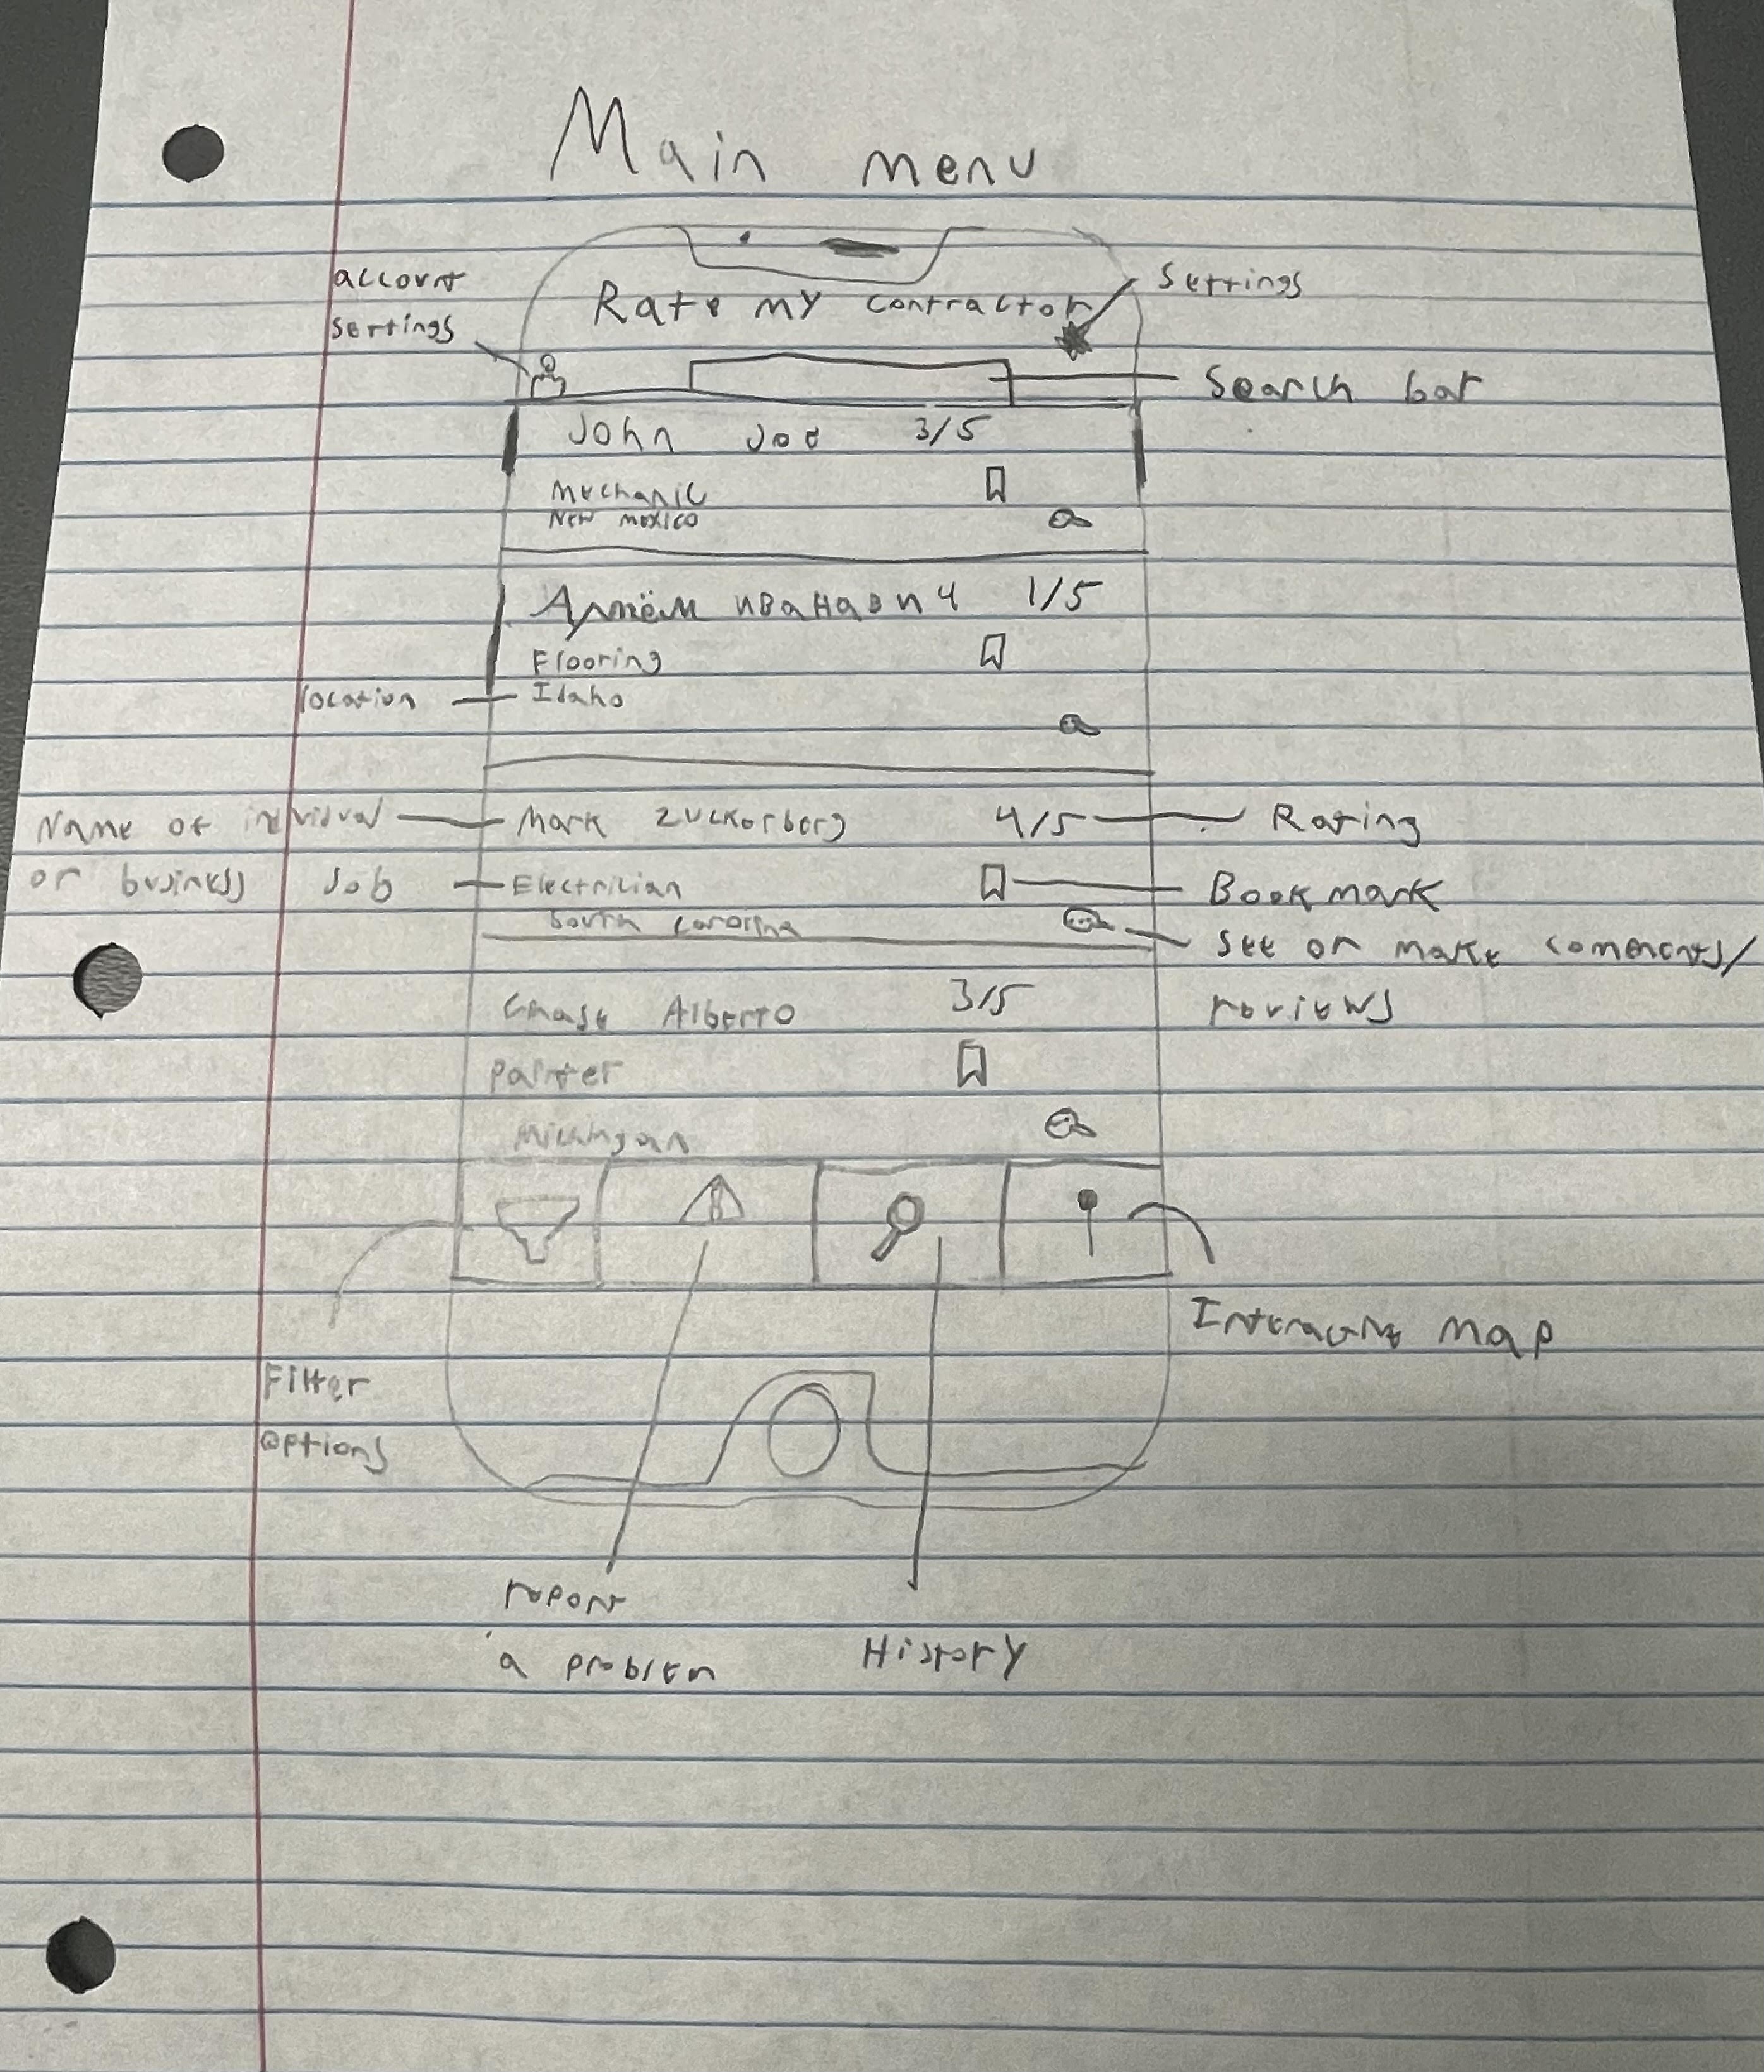 Main menu
account
settings
Rate my contractor
Settings
Search bar
John Joe 3/5
Mechanic
New mexico
Артём иванавич 1/5
Flooring
location Idaho
Name of individual
or business
Mark Zuckerberg 4/5 Rating
Job Electrician Bookmark
South Carolina
See or make comments/
reviews
Chase Alberto 3/5
Painter
Michigan
Interactive map
Filter
options
report
a problem
History